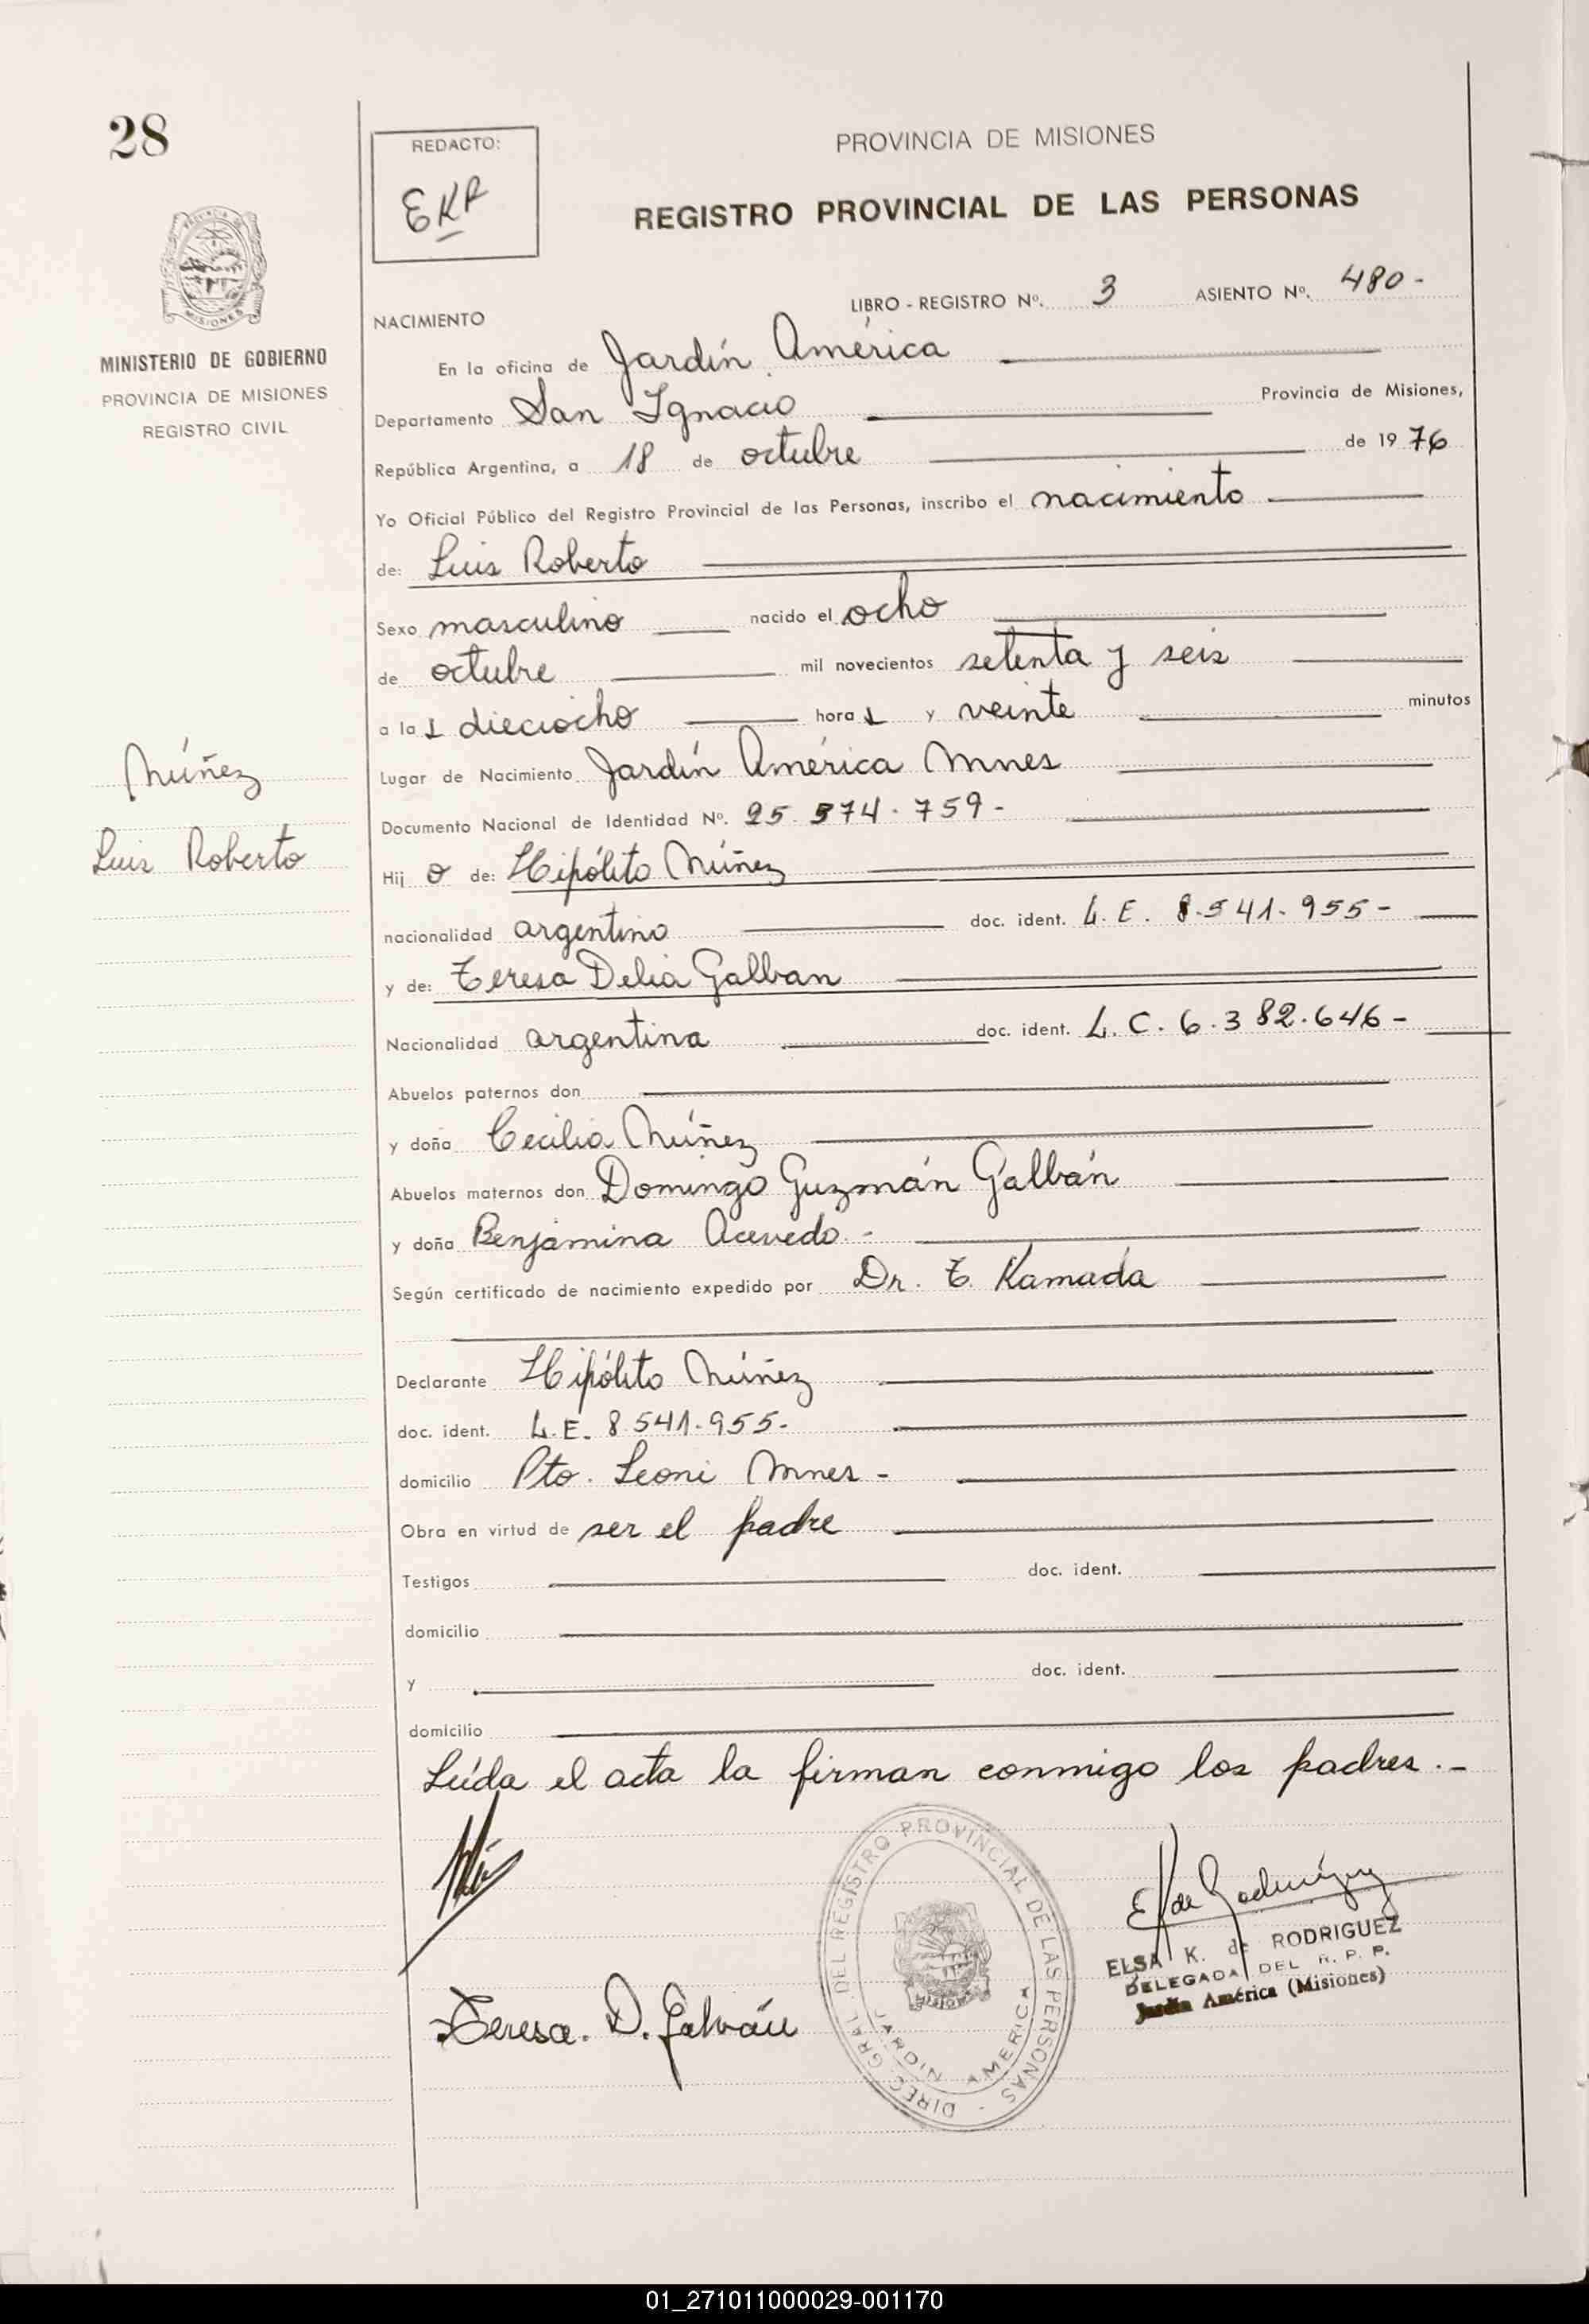 28
REDACTO:
EKR
PROVINCIA DE MISIONES
REGISTRO PROVINCIAL DE LAS PERSONAS
MISIONES
MINISTERIO DE GOBIERNO
PROVINCIA DE MISIONES
REGISTRO CIVIL
LIBRO - REGISTRO Nº. 3 ASIENTO Nº. 480-
NACIMIENTO
En la oficina de Jardín América
Departamento San Ignacio Provincia de Misiones,
República Argentina, a 18 de octubre de 1976
Yo Oficial Público del Registro Provincial de las Personas, inscribo el nacimiento
de: Luis Roberto
Sexo masculino nacido el ocho
de octubre mil novecientos setenta y seis
a las dieciocho horas y veinte minutos
Núñez
Luis Roberto
Lugar de Nacimiento Jardín América Mnes
Documento Nacional de Identidad Nº. 25.574.759-
Hijo de: Hipólito Núñez
nacionalidad argentino doc. ident. L.E. 8.541.955-
y de: Teresa Delia Galban
Nacionalidad argentina doc. ident. L.C. 6.382.646-
Abuelos paternos don
y doña Cecilia Núñez
Abuelos maternos don Domingo Guzmán Galbán
y doña Benjamina Acevedo.-
Según certificado de nacimiento expedido por Dr. T. Kamada
Declarante Hipólito Núñez
doc. ident. L.E. 8.541.955-
domicilio Pto. Leoni Mnes-
Obra en virtud de ser el padre
Testigos doc. ident.
domicilio
y doc. ident.
domicilio
Leída el acta la firman conmigo los padres.-
DIREC. GRAL. DEL REGISTRO PROVINCIAL DE LAS PERSONAS -
MISIONES
JARDIN AMERICA
E K de Rodríguez
ELSA K. de RODRIGUEZ
DELEGADA DEL R. P. P.
Jardín América (Misiones)
Teresa. D. Galván
01_271011000029-001170